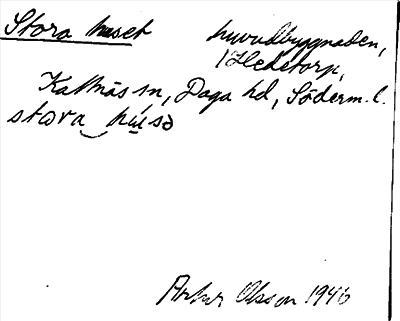 Stora huset huvudbyggnaden,
Hedetorp,
Kattnäs sn, Daga hd, Söderm. l.
stωra hu̱sə
Artur Olsson 1946